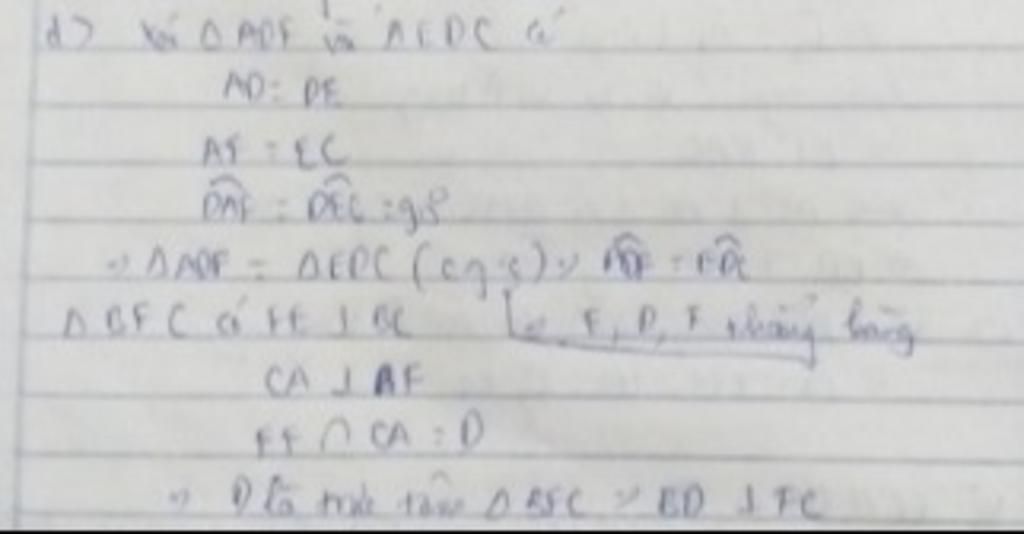 d) Xét ΔADF và ΔEDC có
AD = DE
AF = EC
DAF = DEC = 90°
=> ΔADF = ΔEDC (c.g.c) => ADF = EDC
ΔBFC có FE ⊥ BC => E, D, F thẳng hàng
CA ⊥ BF
FE ∩ CA = D
=> D là trực tâm ΔBFC => BD ⊥ FC